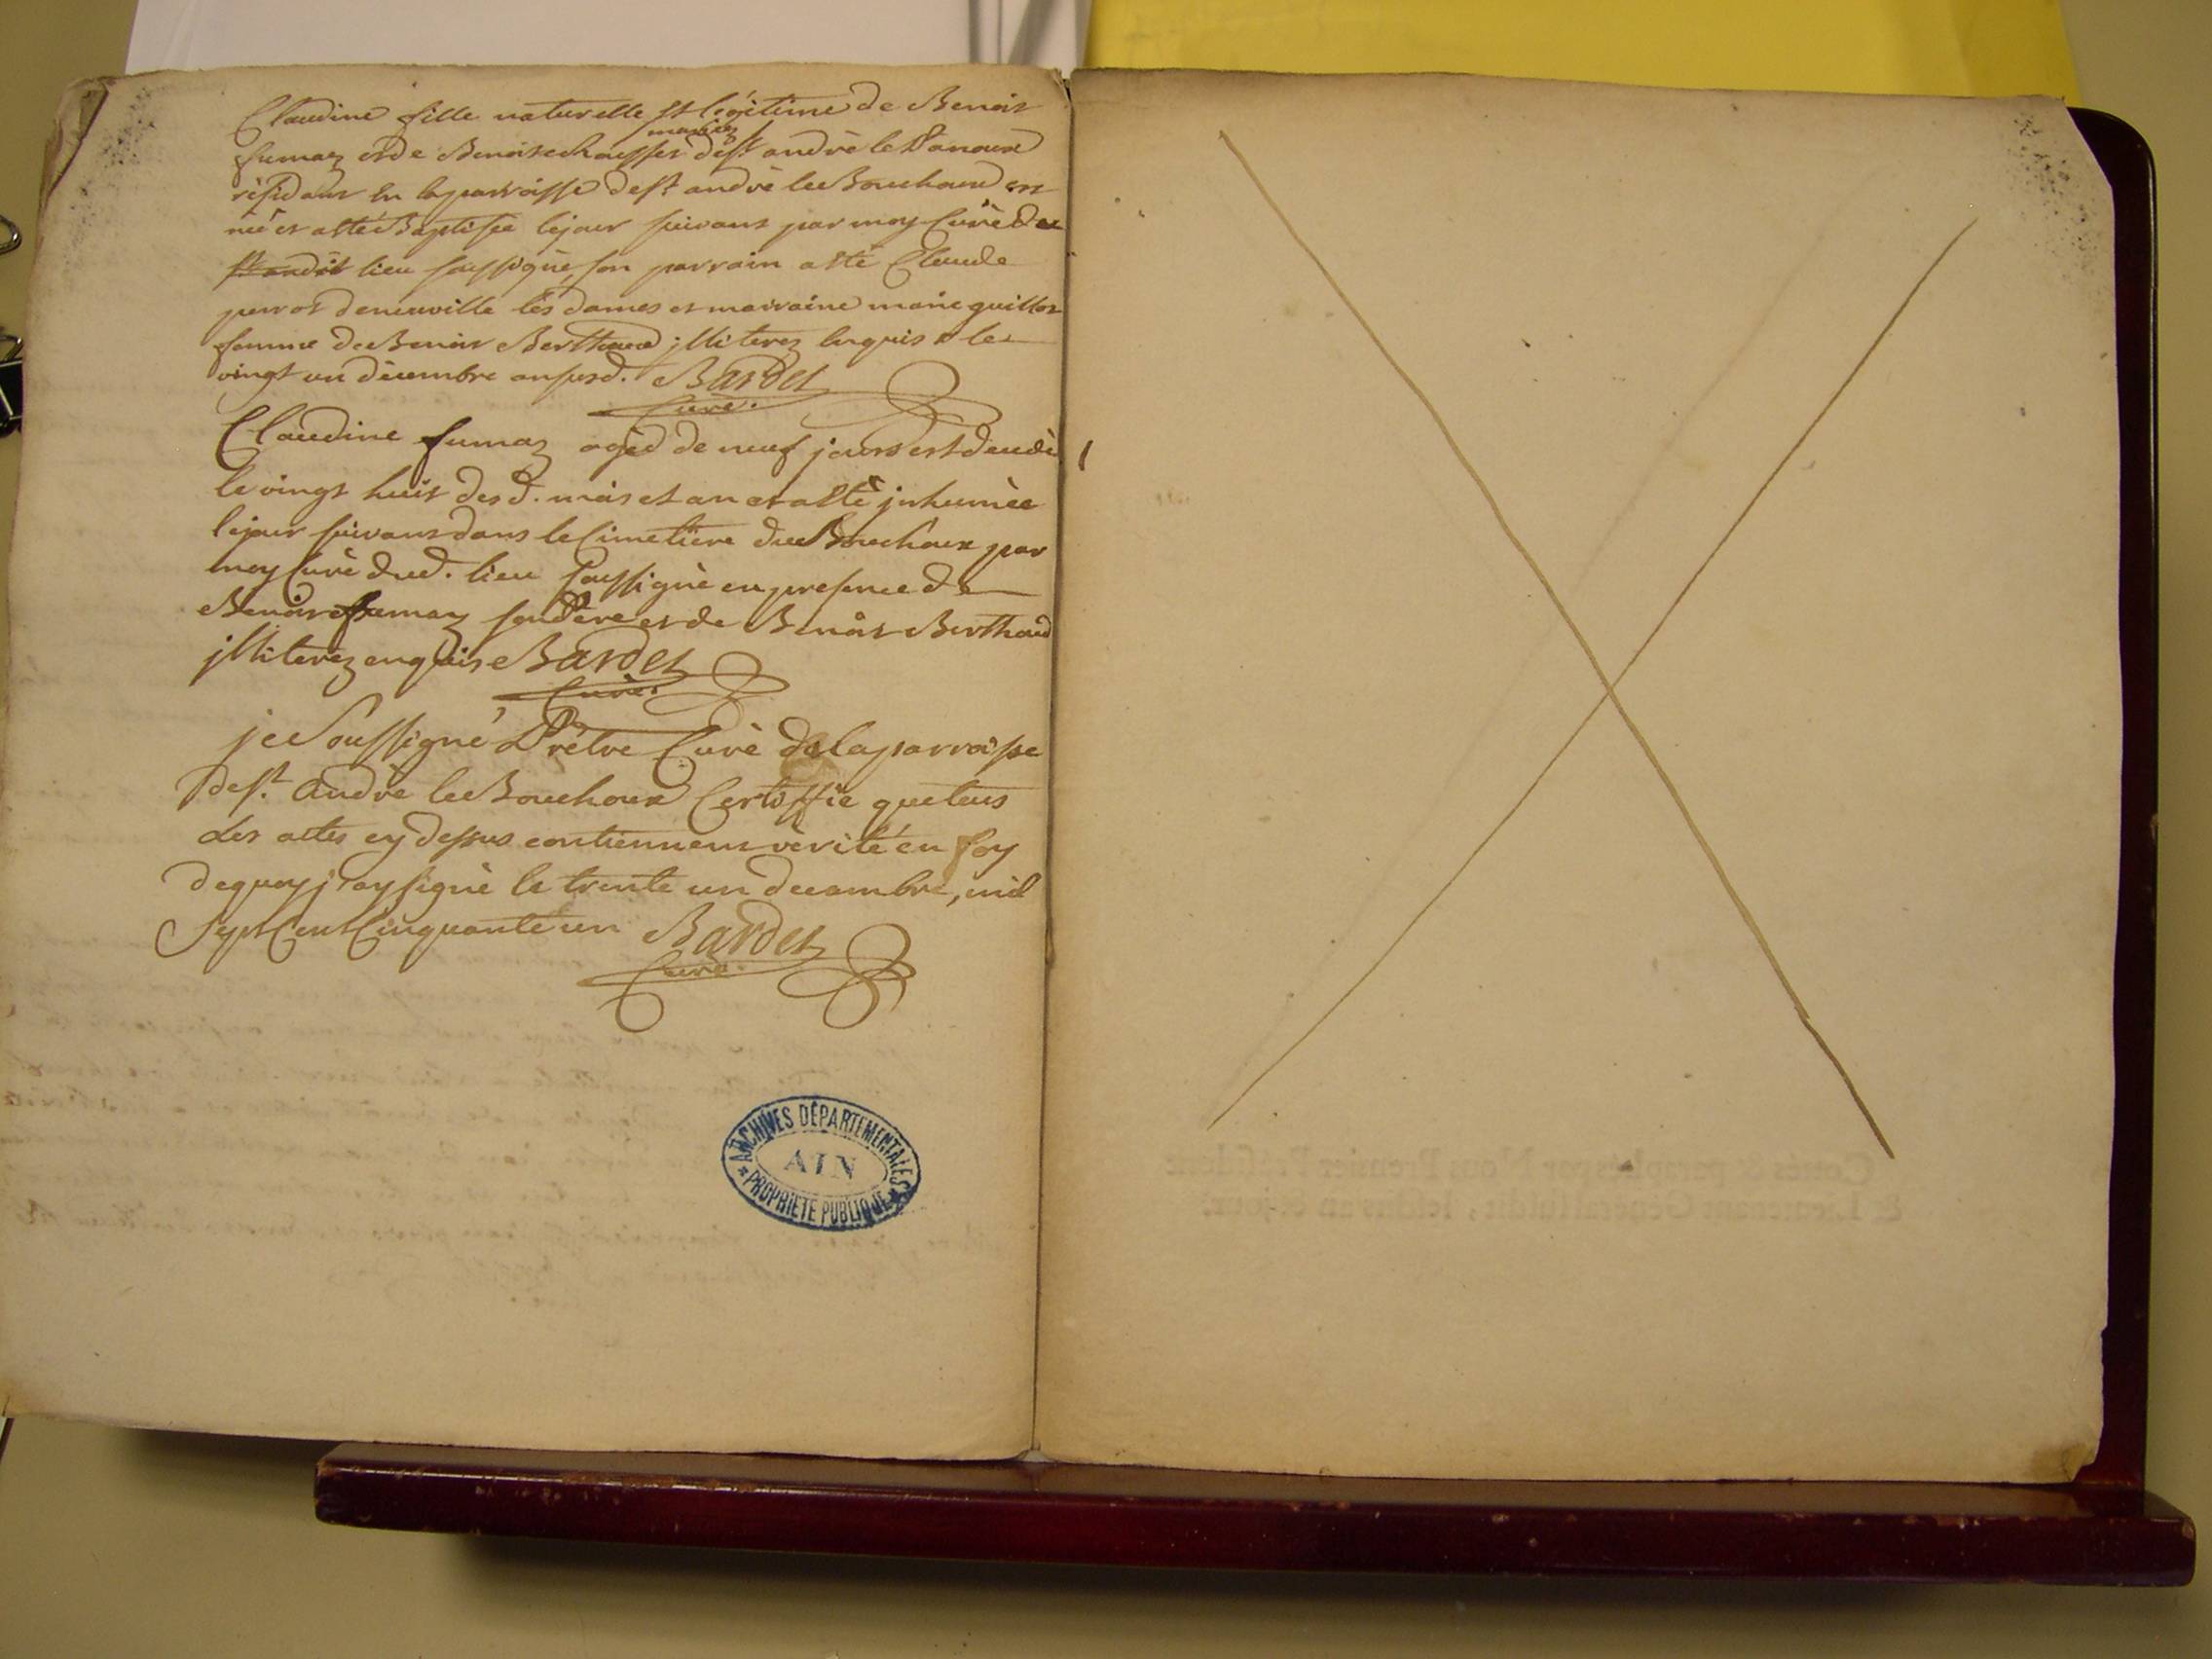 Claudine fille naturelle et légitime de Benoit
fumaz et de Benoite chausser de st andrè le Panoux
mariez
rèsidant en la parroisse de st andrè le Bouchoux est
née et a étté Baptisèe le jour suivant par moy Curè du
lieu soussignè, son parrain a etè Claude
perrot de neuville les dames et marraine marie guillot
femme de Benoit Berthaud illiterez enquis le
vingt un dècembre an susd. Bardet
Curè.
Claudine fumaz agèe de neuf jours est decedè
le vingt huit desd. mois et an et a ettè inhumèe
le jour suivant dans le Cimetière du Bouchoux par
moy Curè dud. lieu soussignè en presence de
Benoit fumaz son Pere et de Benoit Berthaud
illiterez enquis Bardet
Curè.
je Soussigné Prêtre Curè de la parroisse
de st. Andrè le Bouchoux Certiffie que tous
les actes cy dessus contiennent vèrité en foy
de quoy j'ay signè le trente un decembre, mil
Sept Cent Cinquante un Bardet
Curè.
ARCHIVES DÉPARTEMENTALES
AIN
PROPRIÉTÉ PUBLIQUE